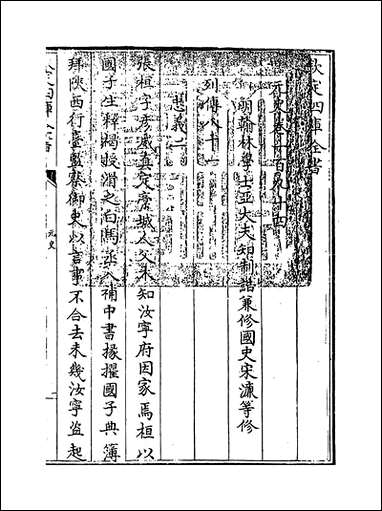 欽定四庫全書
元史卷一百九十四
明翰林學士亞中大夫知制誥兼修國史宋濂等修
列傳八十一
忠義二
張桓字彥威真定藁城人父木知汝寧府因家焉桓以
國子生釋褐授滑之白馬丞入補中書掾擢國子典簿
拜陝西行臺監察御史以言事不合去未幾汝寧盜起
元史